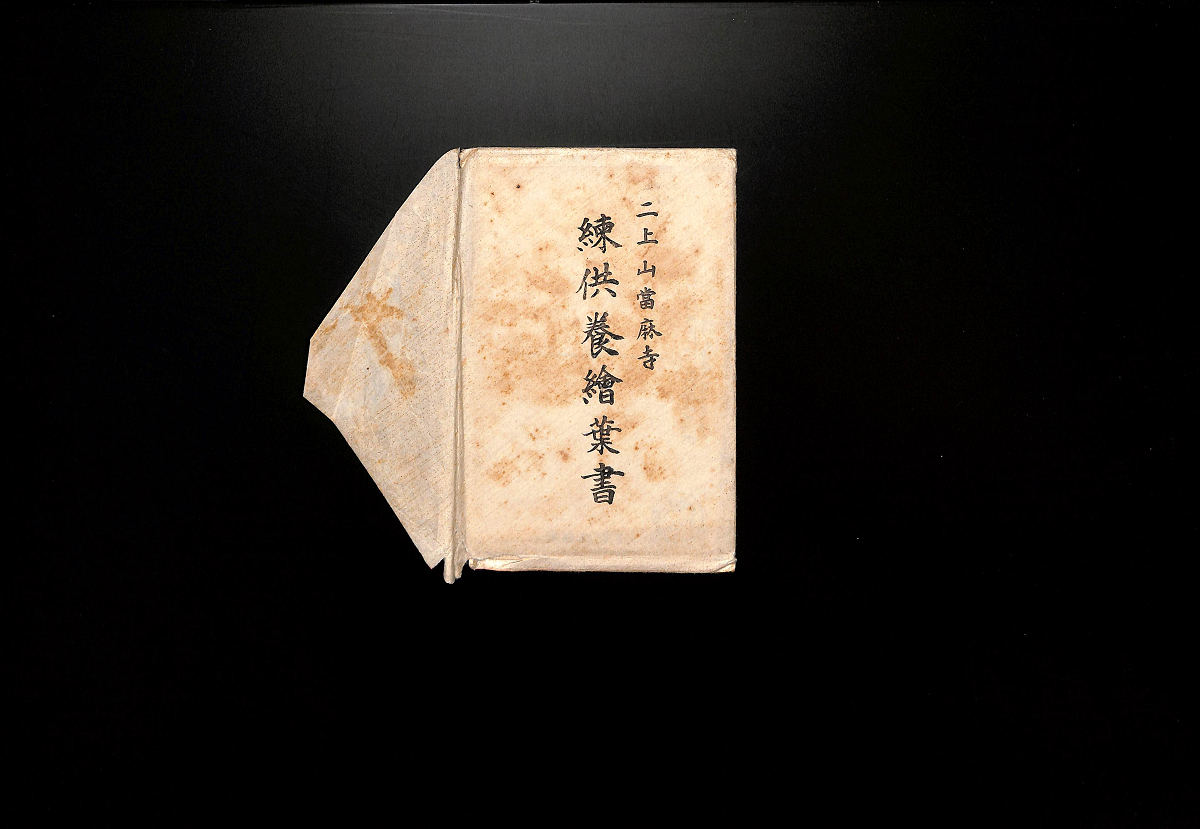 二上山當麻寺
練供養繪葉書